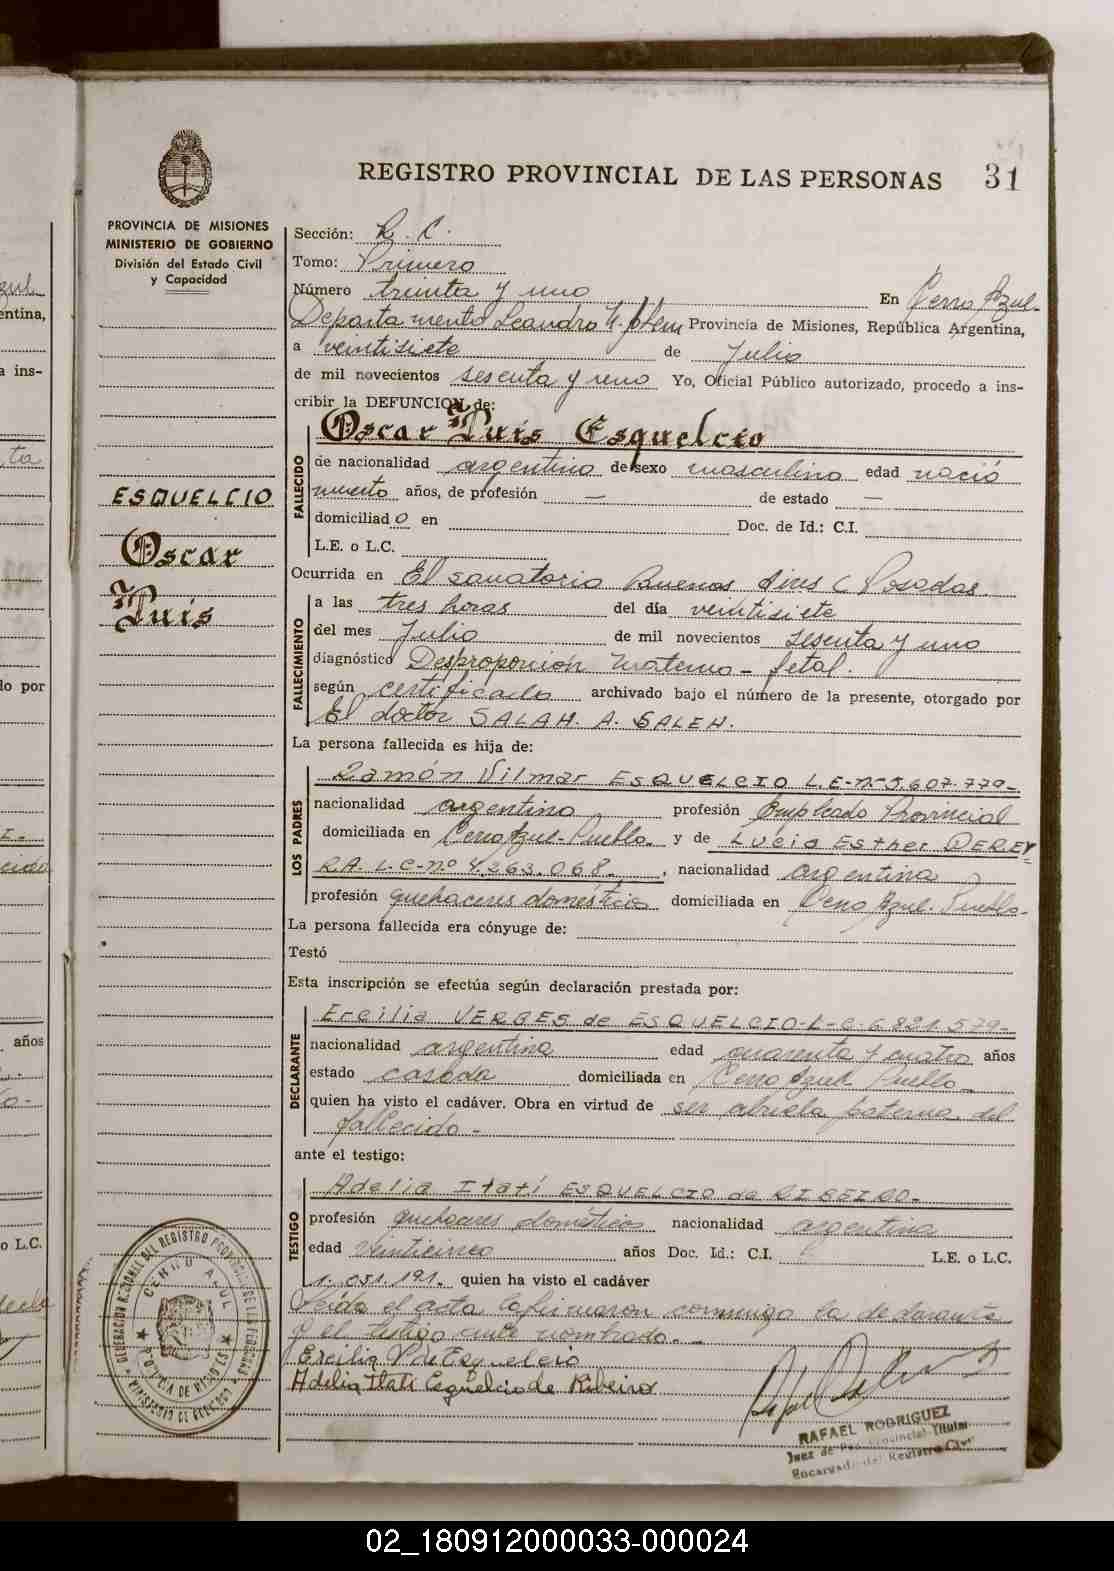 REGISTRO PROVINCIAL DE LAS PERSONAS 31
PROVINCIA DE MISIONES
MINISTERIO DE GOBIERNO
División del Estado Civil
y Capacidad
ESQUELCIO
Oscar
Luis
Sección: R. C.
Tomo: Primero
Número treinta y uno En Cerro Azul-
Departamento Leandro N. Alem Provincia de Misiones, República Argentina,
a veintisiete de Julio
de mil novecientos sesenta y uno Yo, Oficial Público autorizado, procedo a ins-
cribir la DEFUNCION de:
Oscar Luis Esquelcio
FALLECIDO
de nacionalidad argentina de sexo masculino edad nació
muerto años, de profesión — de estado —
domiciliado en Doc. de Id.: C.I.
L.E. o L.C.
Ocurrida en El sanatorio Buenos Aires (Posadas.
FALLECIMIENTO
a las tres horas del día veintisiete
del mes Julio de mil novecientos sesenta y uno
diagnóstico Desproporción materno - fetal.
según certificado archivado bajo el número de la presente, otorgado por
El doctor SALAH. A. SALEH.
La persona fallecida es hija de:
LOS PADRES
Ramón Vilmar ESQUELCIO L.E-nº 5.607.779-
nacionalidad argentino profesión Empleado Provincial
domiciliada en Cerro Azul-Pueblo. y de Lucia Esther PEREY
RA. L-C-nº 4.263.068.-, nacionalidad argentina
profesión quehaceres domésticos domiciliada en Cerro Azul. Pueblo-
La persona fallecida era cónyuge de:
Testó
Esta inscripción se efectúa según declaración prestada por:
DECLARANTE
Ercilia VERGES de ESQUELCIO-L-C-6.821.579-
nacionalidad argentina edad cuarenta y cuatro años
estado casada domiciliada en Cerro Azul Pueblo-
quien ha visto el cadáver. Obra en virtud de ser abuela paterna del
fallecido-
ante el testigo:
TESTIGO
Adelia Itatí ESQUELCIO de RIBEIRO-
profesión quehaceres domésticos nacionalidad argentina
edad veinticinco años Doc. Id.: C.I. L.E. o L.C.
1.051.191. quien ha visto el cadáver
Leída el acta la firmaron conmigo la declarante
y el testigo nombrado.-
Ercilia V de Esquelcio
Adelia Itati Esquelcio de Ribeiro
RAFAEL RODRIGUEZ
Juez de Paz Provincial Titular
Encargado del Registro Civil
CERRO AZUL
entina,
a ins-
do por
años
o L.C.
02_180912000033-000024